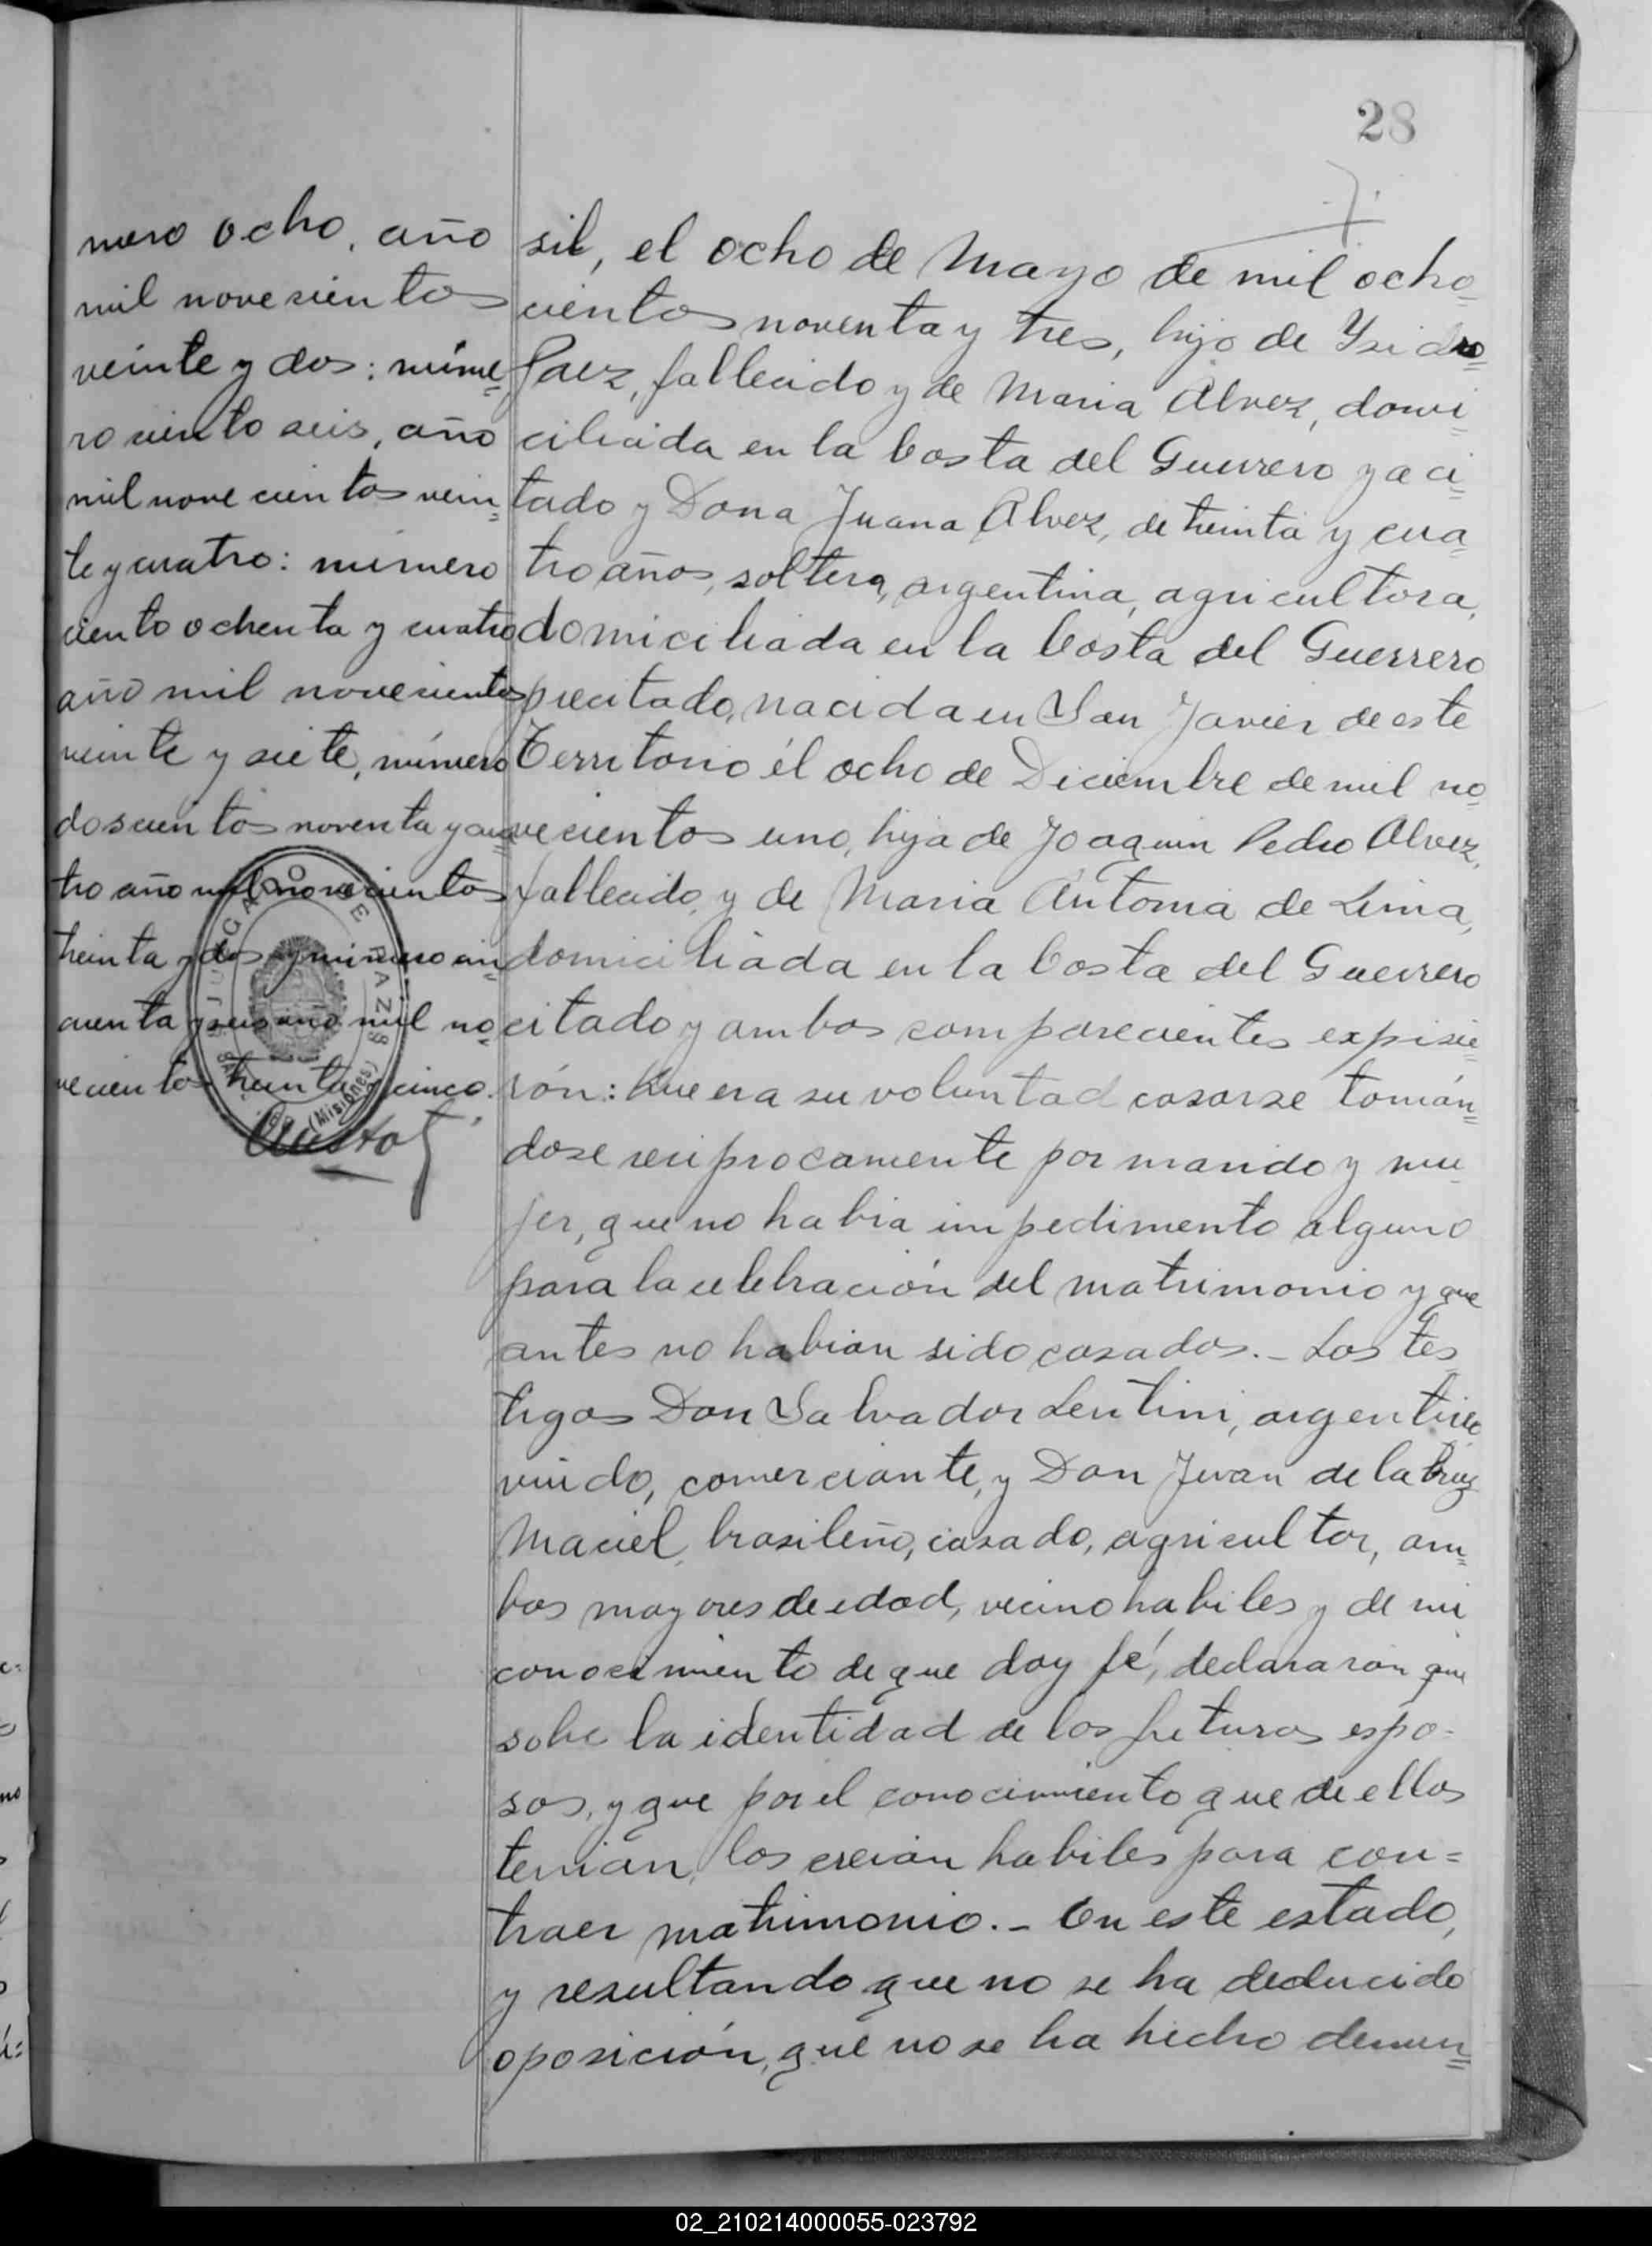 28
mero ocho, año
mil novecientos
veinte y dos: núme=
ro ciento seis, año
mil novecientos vein=
te y cuatro: número
ciento ochenta y cuatro
año mil novecientos
veinte y siete, número
doscientos noventa y cua=
tro año mil novecientos
treinta y dos y número cin=
cuenta y seis año mil no=
vecientos treinta y cinco.
JUZGADO DE PAZ
(Misiones)
sil, el ocho de Mayo de mil ocho=
cientos noventa y tres, hijo de Ysidro=
Paez, fallecido y de Maria Alvez, domi=
ciliada en la Costa del Guerrero ya ci=
tado y Dona Juana Alvez, de treinta y cua=
tro años, soltera, argentina, agricultora,
domiciliada en la Costa del Guerrero
precitado, nacida en San Javier de este
Territorio él ocho de Diciembre de mil no=
vecientos uno, hija de Joaquin Pedro Alvez,
fallecido, y de Maria Antonia de Lima,
domiciliada en la Costa del Guerrero
citado y ambos comparecientes expisie=
rón: Que era su voluntad casarse tomán=
dose reciprocamente por marido y mu=
jer, que no habia impedimento alguno
para la celebración del matrimonio y que
antes no habian sido casados.- Los tes=
tigos Don Salvador Lentini, argentino
viudo, comerciante, y Don Juan de la Cruz
Maciel, brasileño, casado, agricultor, am=
bos mayores de edad, vecino habiles y de mi
conocimiento de que doy fé, declararon que
sobre la identidad de los futuros espo=
sos, y que por el conocimiento que de ellos
tenian, los creian habiles para con=
traer matrimonio.- En este estado,
y resultando que no se ha deducido
oposición, que no se ha hecho denun=
02_210214000055-023792